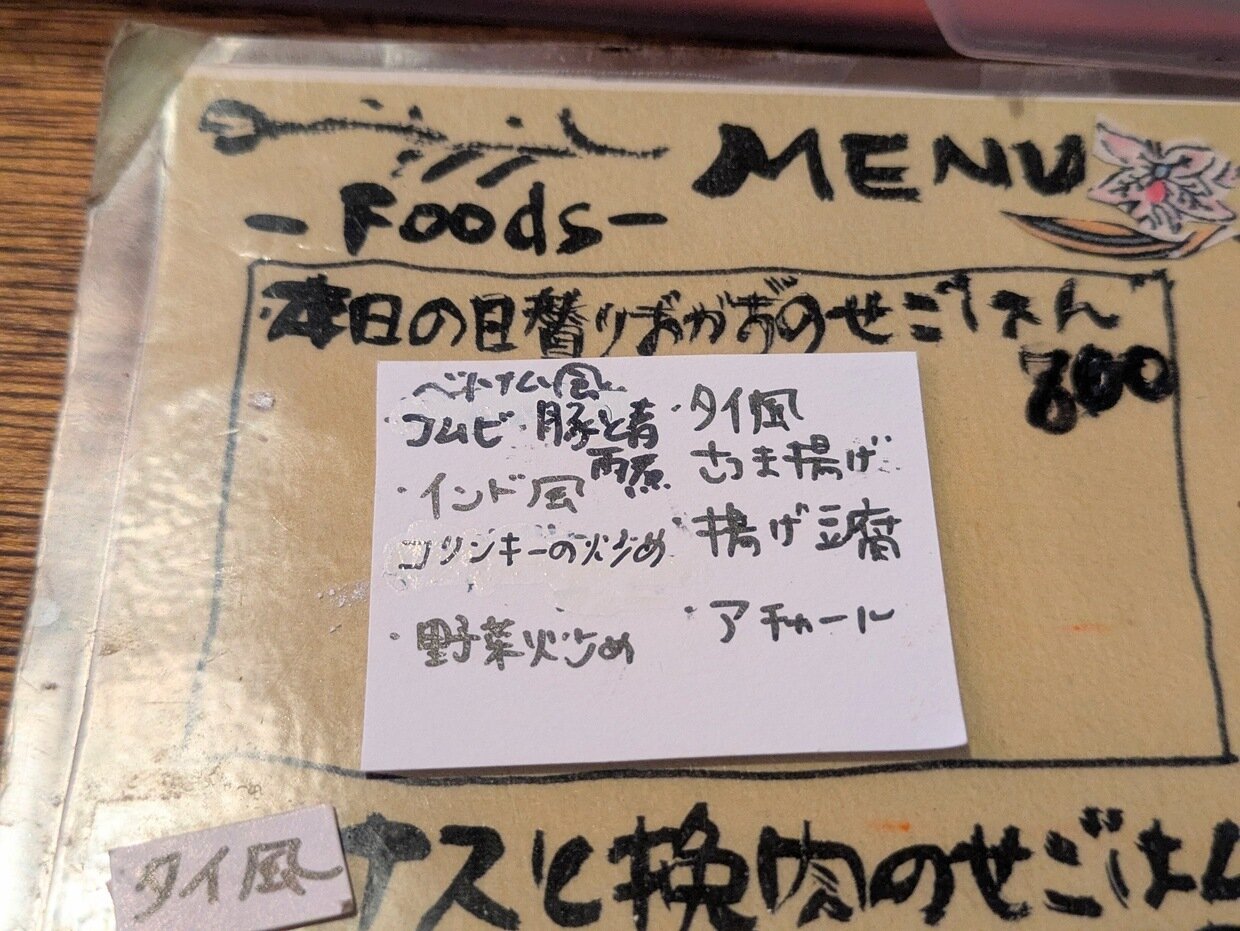 MENU
- Foods -
本日の日替りおかずのせごはん
800
ベトナム風
コムビ・豚と青
・インド風
コリンキーの炒め
・野菜炒め
・タイ風
さつま揚げ
・揚げ豆腐
・アチャール
タイ風
ナスと挽肉のせごはん